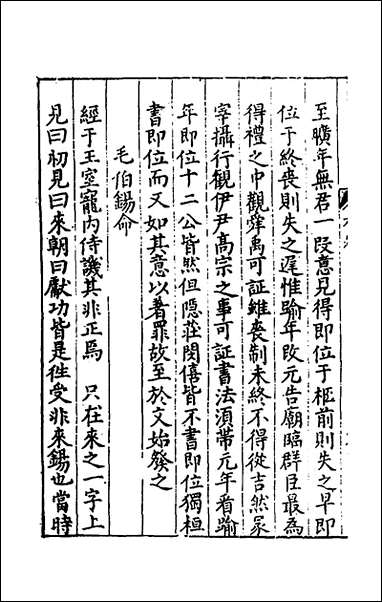 至曠年無君一段意見得即位于柩前則失之早即
位于終喪則失之遲惟踰年改元告廟臨群臣最為
得禮之中觀舜禹可証雖喪制未終不得從吉然冢
宰攝行觀伊尹高宗之事可証書法湏帶元年看踰
年即位十二公皆然但隱莊閔僖皆不書即位獨桓
書即位而又如其意以著罪故至於文始發之
毛伯錫命
經于王室寵内侍譏其非正焉 只在來之一字上
見曰初見曰來朝曰獻功皆是徃受非來錫也當時